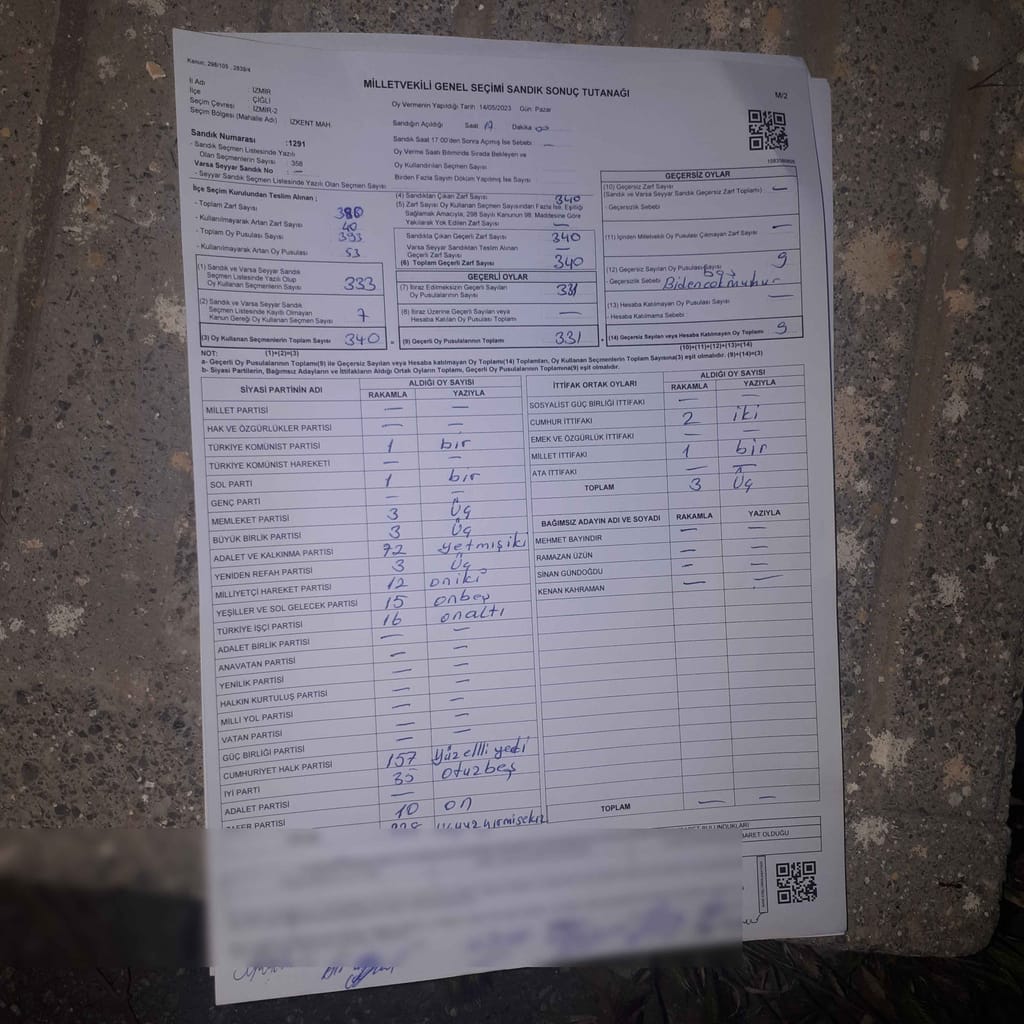 Kanun: 298/105 , 2839/4
MİLLETVEKİLİ GENEL SEÇİMİ SANDIK SONUÇ TUTANAĞI
M/2
İl Adı : İZMİR
İlçe : ÇİĞLİ
Seçim Çevresi : İZMİR-2
Seçim Bölgesi (Mahalle Adı) İZKENT MAH.
Oy Vermenin Yapıldığı Tarih 14/05/2023 Gün: Pazar
Sandığın Açıldığı Saat Dakika
Sandık Saat 17:00'den Sonra Açılmış İse Sebebi —
Oy Verme Saati Bitiminde Sırada Bekleyen ve
Oy Kullandırılan Seçmen Sayısı
Birden Fazla Sayım Döküm Yapılmış İse Sayısı
Sandık Numarası :1291
- Sandık Seçmen Listesinde Yazılı
Olan Seçmenlerin Sayısı : 358
Varsa Seyyar Sandık No : —
- Seyyar Sandık Seçmen Listesinde Yazılı Olan Seçmen Sayısı
İlçe Seçim Kurulundan Teslim Alınan ;
- Toplam Zarf Sayısı 380
- Kullanılmayarak Artan Zarf Sayısı 40
- Toplam Oy Pusulası Sayısı 393
- Kullanılmayarak Artan Oy Pusulası 53
(1) Sandık ve Varsa Seyyar Sandık
Seçmen Listesinde Yazılı Olup
Oy Kullanan Seçmenlerin Sayısı 333
(2) Sandık ve Varsa Seyyar Sandık
Seçmen Listesinde Kayıtlı Olmayan
Kanun Gereği Oy Kullanan Seçmen Sayısı 7
(3) Oy Kullanan Seçmenlerin Toplam Sayısı 340
(1)+(2)=(3)
(4) Sandıktan Çıkan Zarf Sayısı 340
(5) Zarf Sayısı Oy Kullanan Seçmen Sayısından Fazla İse, Eşitliği
Sağlamak Amacıyla, 298 Sayılı Kanunun 98. Maddesine Göre
Yakılarak Yok Edilen Zarf Sayısı —
Sandıkta Çıkan Geçerli Zarf Sayısı 340
Varsa Seyyar Sandıktan Teslim Alınan
Geçerli Zarf Sayısı —
(6) Toplam Geçerli Zarf Sayısı 340
GEÇERLİ OYLAR
(7) İtiraz Edilmeksizin Geçerli Sayılan
Oy Pusulalarının Sayısı 331
(8) İtiraz Üzerine Geçerli Sayılan veya
Hesaba Katılan Oy Pusulası Toplamı —
= (9) Geçerli Oy Pusulalarının Toplamı 331
GEÇERSİZ OYLAR
(10) Geçersiz Zarf Sayısı
(Sandık ve Varsa Seyyar Sandık Geçersiz Zarf Toplamı) : —
- Geçersizlik Sebebi
(11) İçinden Milletvekili Oy Pusulası Çıkmayan Zarf Sayısı —
(12) Geçersiz Sayılan Oy Pusulası Sayısı 9
- Geçersizlik Sebebi
(13) Hesaba Katılmayan Oy Pusulası Sayısı —
- Hesaba Katılmama Sebebi
+ (14) Geçersiz Sayılan veya Hesaba Katılmayan Oy Toplamı 9
(10)+(11)+(12)+(13)=(14)
NOT:
a- Geçerli Oy Pusulalarının Toplamı(9) ile Geçersiz Sayılan veya Hesaba Katılmayan Oy Toplamı(14) Toplamları, Oy Kullanan Seçmenlerin Toplam Sayısına(3) eşit olmalıdır. (9)+(14)=(3)
b- Siyasi Partilerin, Bağımsız Adayların ve İttifakların Aldığı Ortak Oyların Toplamı, Geçerli Oy Pusulalarının Toplamına(9) eşit olmalıdır.
SİYASİ PARTİNİN ADI ALDIĞI OY SAYISI
RAKAMLA YAZIYLA
MİLLET PARTİSİ — —
HAK VE ÖZGÜRLÜKLER PARTİSİ — —
TÜRKİYE KOMÜNİST PARTİSİ 1 bir
TÜRKİYE KOMÜNİST HAREKETİ — —
SOL PARTİ 1 bir
GENÇ PARTİ — —
MEMLEKET PARTİSİ 3 Üç
BÜYÜK BİRLİK PARTİSİ 3 Üç
ADALET VE KALKINMA PARTİSİ 72 yetmişiki
YENİDEN REFAH PARTİSİ 3 Üç
MİLLİYETÇİ HAREKET PARTİSİ 12 oniki
YEŞİLLER VE SOL GELECEK PARTİSİ 15 onbeş
TÜRKİYE İŞÇİ PARTİSİ 16 onaltı
ADALET BİRLİK PARTİSİ — —
ANAVATAN PARTİSİ — —
YENİLİK PARTİSİ — —
HALKIN KURTULUŞ PARTİSİ — —
MİLLİ YOL PARTİSİ — —
VATAN PARTİSİ — —
GÜÇ BİRLİĞİ PARTİSİ — —
CUMHURİYET HALK PARTİSİ 157 Yüzelli yedi
İYİ PARTİ 35 otuzbeş
ADALET PARTİSİ —
ZAFER PARTİSİ 10 on
İTTİFAK ORTAK OYLARI ALDIĞI OY SAYISI
RAKAMLA YAZIYLA
SOSYALİST GÜÇ BİRLİĞİ İTTİFAKI — —
CUMHUR İTTİFAKI 2 iki
EMEK VE ÖZGÜRLÜK İTTİFAKI — —
MİLLET İTTİFAKI 1 bir
ATA İTTİFAKI — —
TOPLAM 3 Üç
BAĞIMSIZ ADAYIN ADI VE SOYADI RAKAMLA YAZIYLA
MEHMET BAYINDIR — —
RAMAZAN ÜZÜN — —
SİNAN GÜNDOĞDU — —
KENAN KAHRAMAN — —
TOPLAM — —